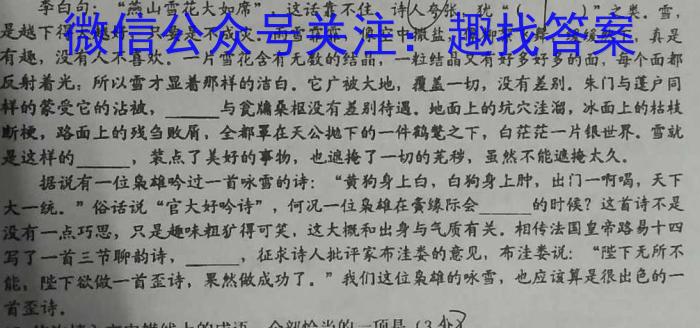 李白句："燕山雪花大如席"，这话靠不住，诗人夸张，犹"（    ）"之类。雪，
是越下得大越好，只要是不成灾。雨雪霏霏，像空中撒盐，像
微信公众号关注：趣找答案
真是
有趣，没有人不喜欢。一片雪花含有无数的结晶，一粒结晶又有好多好多的面，每个面都
反射着光，所以雪才显着那样的洁白。它广被大地，覆盖一切，没有差别。朱门与蓬户同
样的蒙受它的沾被，______与瓮牖桑枢没有差别待遇。地面上的坑穴洼溜，冰面上的枯枝
断梗，路面上的残刍败屑，全都罩在天公抛下的一件鹤氅之下，白茫茫一片银世界。雪就
是这样的______，装点了美好的事物，也遮掩了一切的芜秽，虽然不能遮掩太久。
据说有一位枭雄吟过一首咏雪的诗："黄狗身上白，白狗身上肿，出门一啊喝，天下
大一统。"俗话说"官大好吟诗"，何况一位枭雄在夤缘际会______的时候？这首诗不是
没有一点巧思，只是趣味粗犷得可笑，这大概和出身与气质有关。相传法国皇帝路易十四
写了一首三节聊韵诗，______，征求诗人批评家布洼娄的意见，布洼娄说："陛下无所不
能，陛下欲做一首歪诗，果然做成功了。"我们这位枭雄的咏雪，也应该算是很出色的一
首歪诗。
上的成语，全部恰当的一项是（3分）